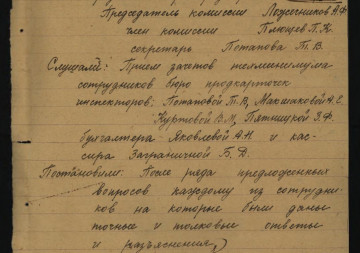 Председатель комиссии Ложечников А.Ф.
член комиссии Плющев П.К.
секретарь Потапова Т.В.
Слушали: Прием зачетов техминимума
сотрудников бюро продкарточек
инспекторов: Потаповой Т.В, Макшаковой А.С.
Куртовой В.М, Пятницкой З.Ф.
бухгалтера - Яковлевой А.Н. и кас-
сира Заграничной Б.Д.
Постановили: После ряда предложенных
вопросов каждому из сотрудни-
ков на которые были даны
точные и толковые ответы
и разъяснения,